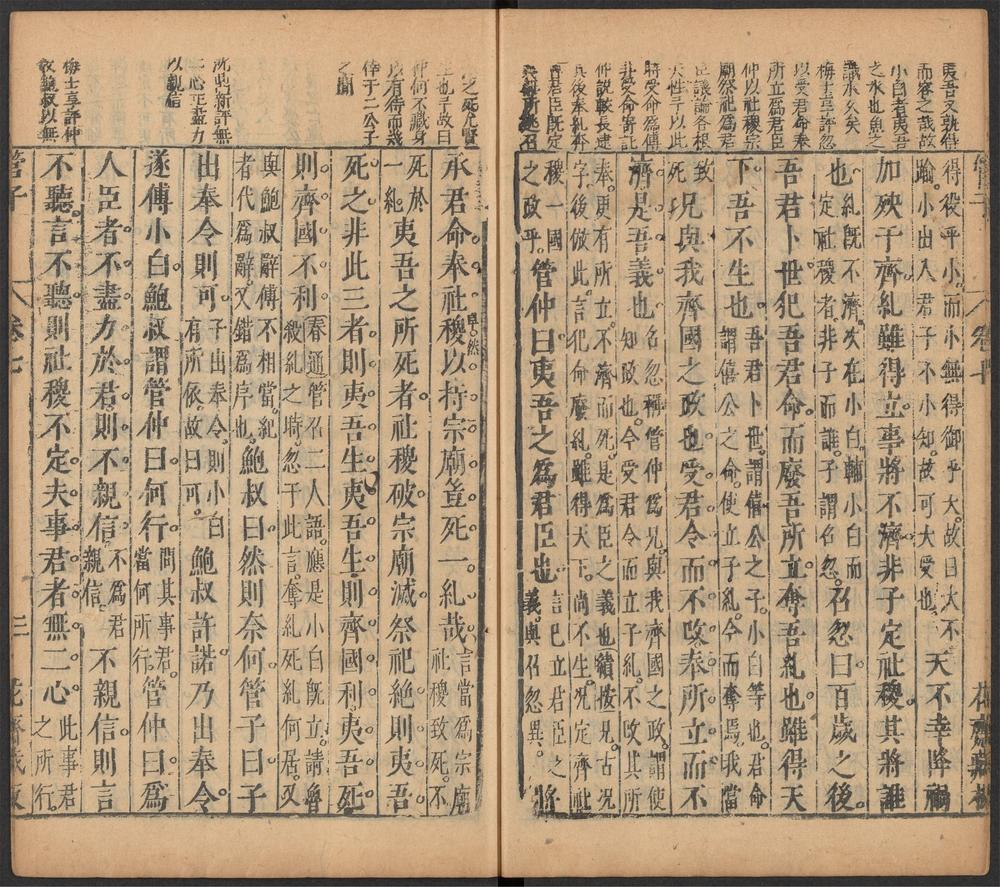 夷吾又孰得
而容之哉故
小白者夷吾
之水也魚之
識水矣
梅士享評忽
以受君命奉
所立爲君臣
仲以社稷宗
廟祭祀爲君
臣議論各根
天性予以此
將受命爲傅
非受命寄託
仲說較長逮
其後奉糺奔
魯君臣旣定
得役乎小而小無得御乎大故曰大不
踰小出入君子不小知故可大受也 天不幸降禍
加殃于齊糺雖得立事將不濟非子定社稷其將誰
也糺旣不濟次在小白輔小白而
定社稷者非子而誰子謂召忽 召忽曰百歲之後
吾君卜世犯吾君命而廢吾所立奪吾糺也雖得天
下吾不生也吾君卜世謂僖公之子小白等也君命
謂僖公之命使立子糺今而奪焉我當
致死 況與我齊國之政也受君令而不改奉所立而不
濟是吾義也名忽稱管仲爲兄與我齊國之政謂使
知政也今受君令而立子糺不改其所
奉更有所立不濟而死是爲臣之義也續按兄古況
字後倣此言犯命廢糺雖得天下尚不生況定齊社
稷一國
之政乎 管仲曰夷吾之爲君臣也言已立君臣之
義與召忽異 將
承君命奉社稷以持宗廟豈死一糺哉言當爲宗廟
社稷致死不
死於
一糺 夷吾之所死者社稷破宗廟滅祭祀絶則夷吾
死之非此三者則夷吾生夷吾生則齊國利夷吾死
則齊國不利春通管召二人語應是小白旣立請魯
殺糺之時忽于此言奪糺死糺何居又
與鮑叔辭傅不相當紀
者代爲辭又錯爲序也 鮑叔曰然則奈何管子曰子
出奉令則可子出奉令則小白
有所依故曰可 鮑叔許諾乃出奉令
遂傅小白鮑叔謂管仲曰何行問其事君
當何所行 管仲曰爲
人臣者不盡力於君則不親信不爲君
親信 不親信則言
不聽言不聽則社稷不定夫事君者無二心此事君
之所行
卓然
管子
卷七
三
之死尤賢
生也予故曰
仲何不藏身
以有待而幾
倖于二公子
之間
沈鼎新評無
二心正盡力
以親信
梅士享評仲
敎鮑叔以無